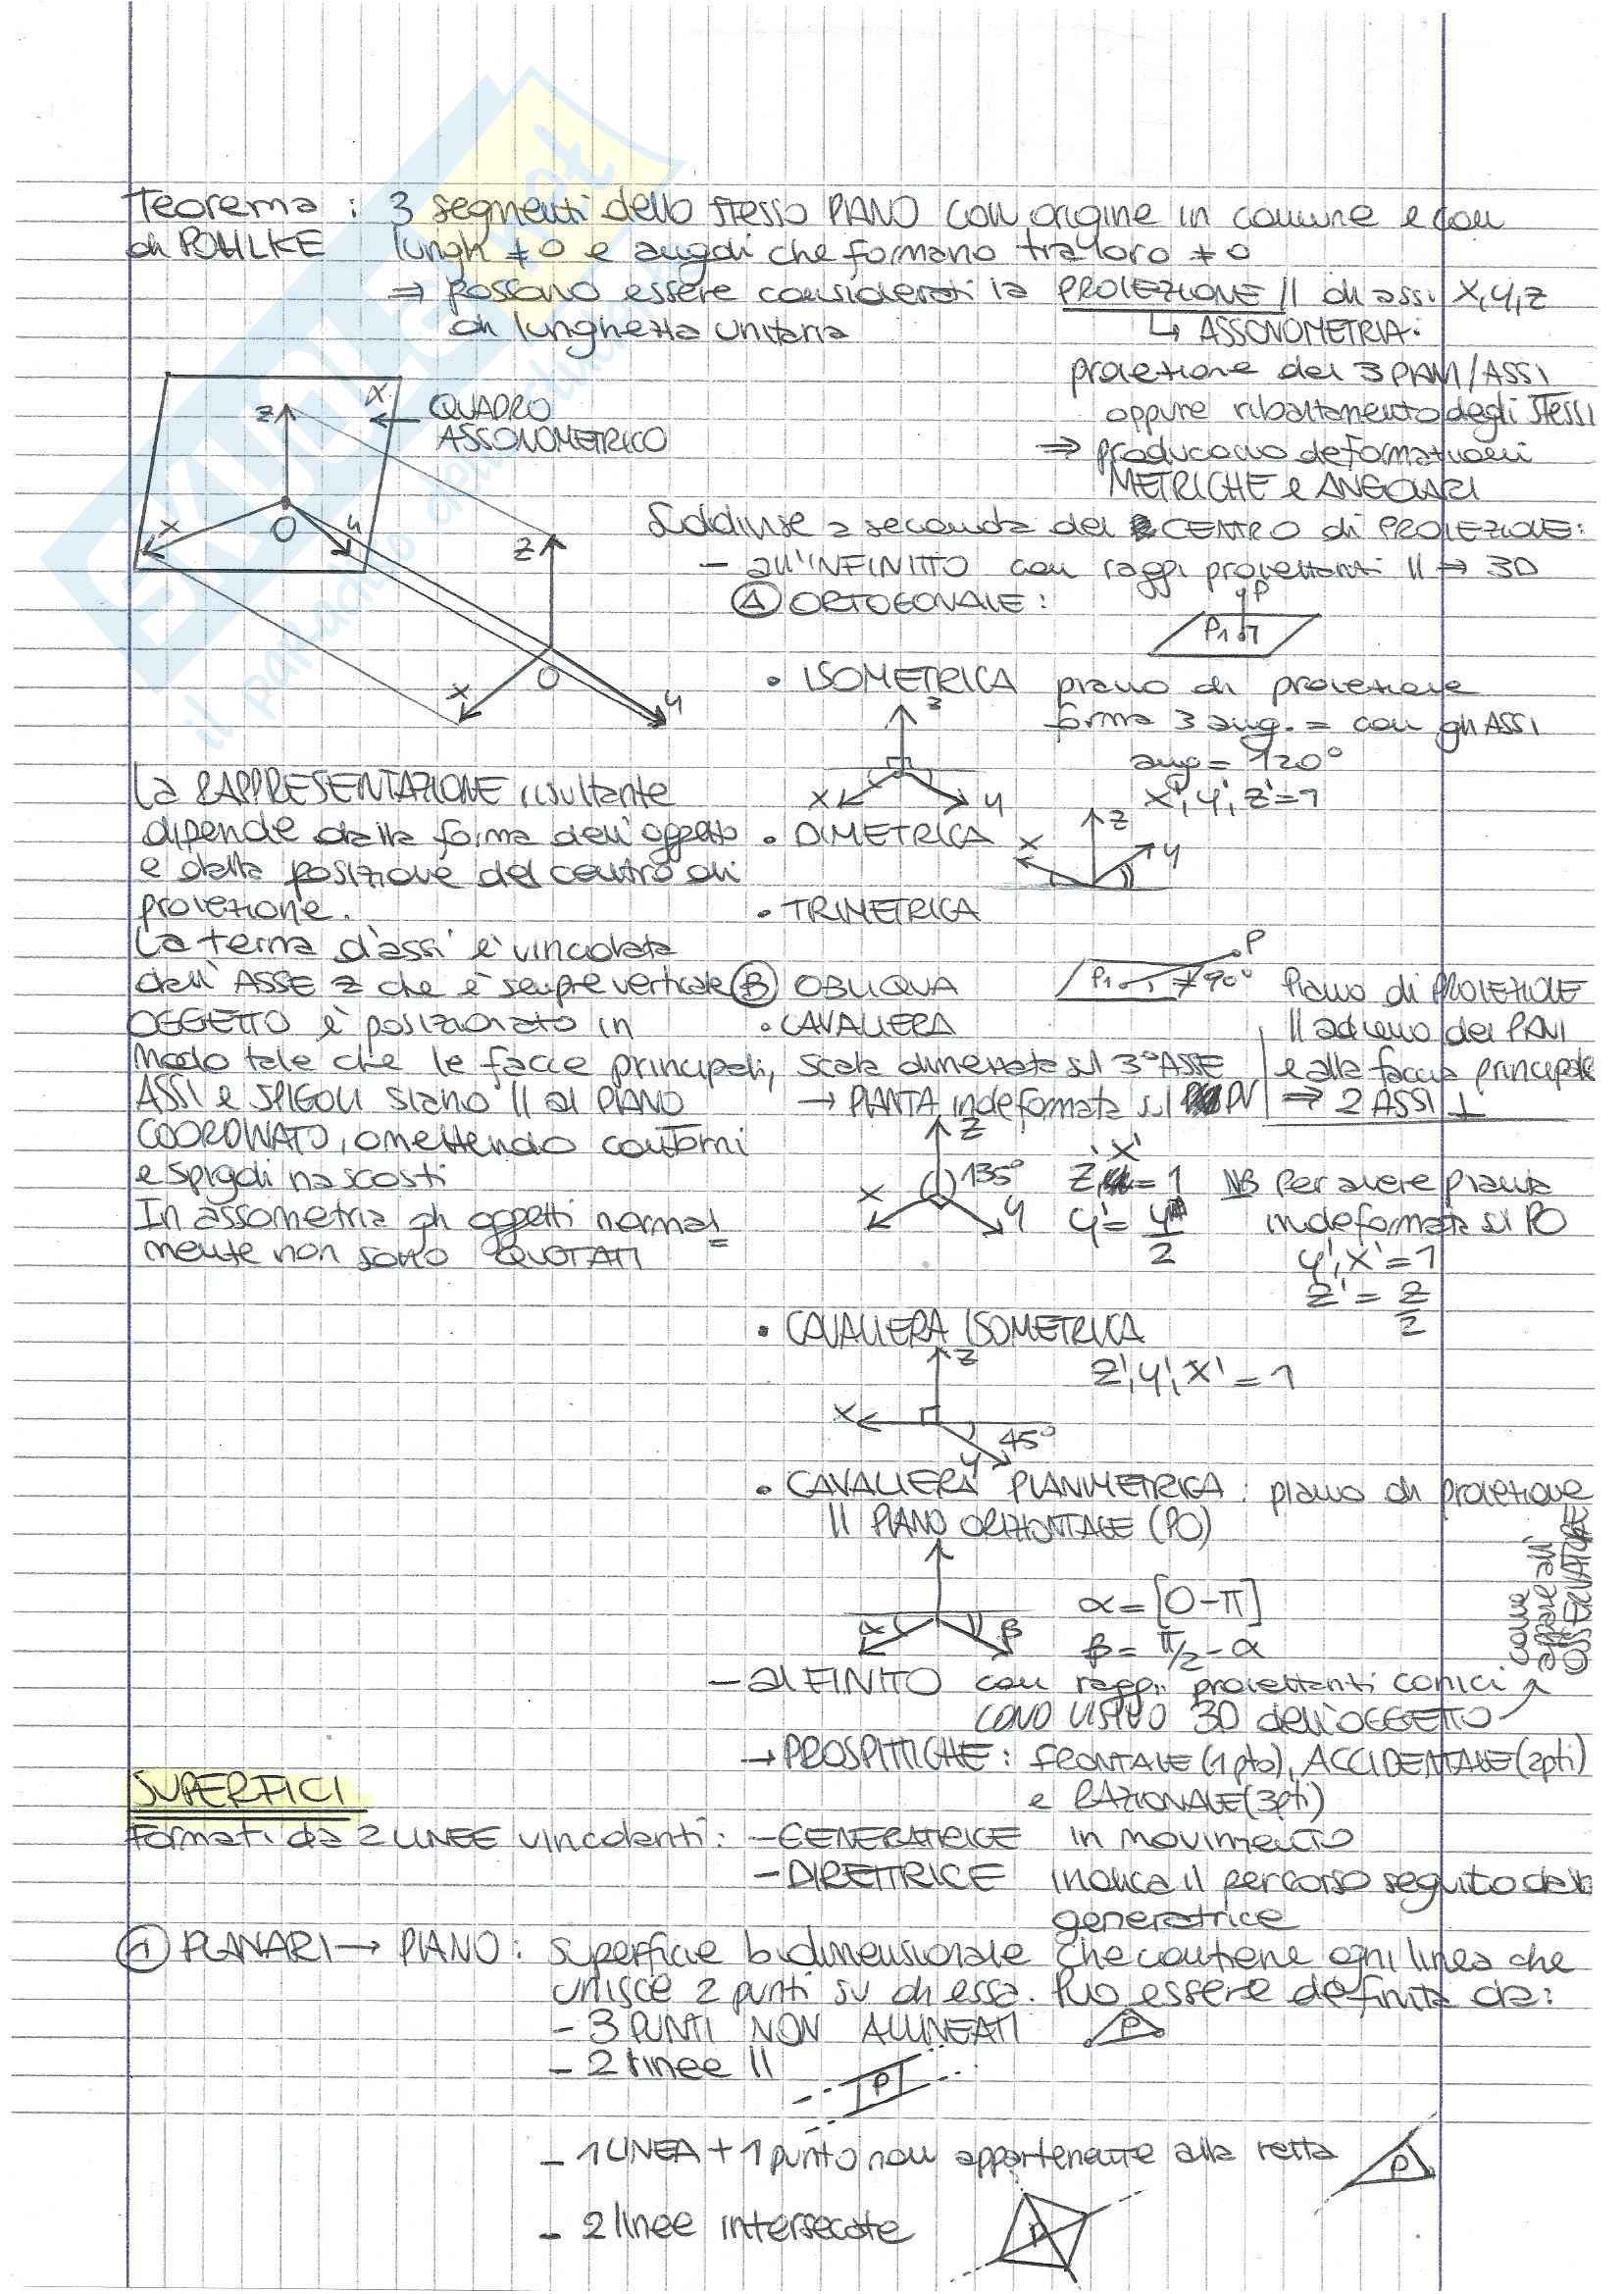 Teorema : 3 segmenti dello stesso PIANO con origine in comune e con
di POHLKE lungh ≠ 0 e angoli che formano tra loro ≠ 0
⇒ possono essere considerati la PROIEZIONE // di assi x,y,z
di lunghezza unitaria
↳ ASSONOMETRIA:
proiezione dei 3 PIANI/ASSI
oppure ribaltamento degli stessi
⇒ producono deformazioni
METRICHE e ANGOLARI
z
α
← QUADRO
ASSONOMETRICO
x
O
y
z
O
x
y
Suddivise a seconda del CENTRO di PROIEZIONE:
- all'INFINITO con raggi proiettanti // → 3D
Ⓐ ORTOGONALE :
P
P1
• ISOMETRICA piano di proiezione
forma 3 ang. = con gli ASSI
ang = 120°
x', y', z' = 1
z
x
y
• DIMETRICA
x
z
y
• TRIMETRICA
La RAPPRESENTAZIONE risultante
dipende dalla forma dell'oggetto
e dalla posizione del centro di
proiezione.
La terna d'assi è vincolata
dall'ASSE z che è sempre verticale
OGGETTO è posizionato in
modo tale che le facce principali,
ASSI e SPIGOLI siano // al PIANO
COORDINATO, omettendo contorni
e spigoli nascosti
In assometria gli oggetti normal=
mente non sono QUOTATI
Ⓑ OBLIQUA
P
P1
≠90°
Piano di PROIEZIONE
// ad uno dei PIANI
e alla faccia principale
⇒ 2 ASSI ⊥
• CAVALIERA
scala dimezzata sul 3° ASSE
→ PIANTA indeformata sul PV
z
135°
x
y
z', x' = 1
y' = y/2
NB Per avere pianta
indeformata sul PO
y', x' = 1
z' = z/2
• CAVALIERA ISOMETRICA
z
z', y', x' = 1
x
45°
y
• CAVALIERA PLANIMETRICA : piano di proiezione
// PIANO ORIZZONTALE (PO)
α
β
α = [0-π]
β = π/2 - α
- al FINITO con raggi proiettanti conici
CONO VISIVO 3D dell'OGGETTO
come
appare all'
OSSERVATORE
→ PROSPITTICHE : FRONTALE (1 pto), ACCIDENTALE (2pti)
e RAZIONALE (3pti)
SUPERFICI
Formati da 2 LINEE vincolanti: - GENERATRICE in movimento
- DIRETTRICE indica il percorso seguito dalla
generatrice
① PLANARI → PIANO : superficie bidimensionale che contiene ogni linea che
unisce 2 punti su di essa. Può essere definita da:
- 3 PUNTI NON ALLINEATI
P
- 2 linee //
P
- 1 LINEA + 1 punto non appartenente alla retta
P
- 2 linee intersecate
P